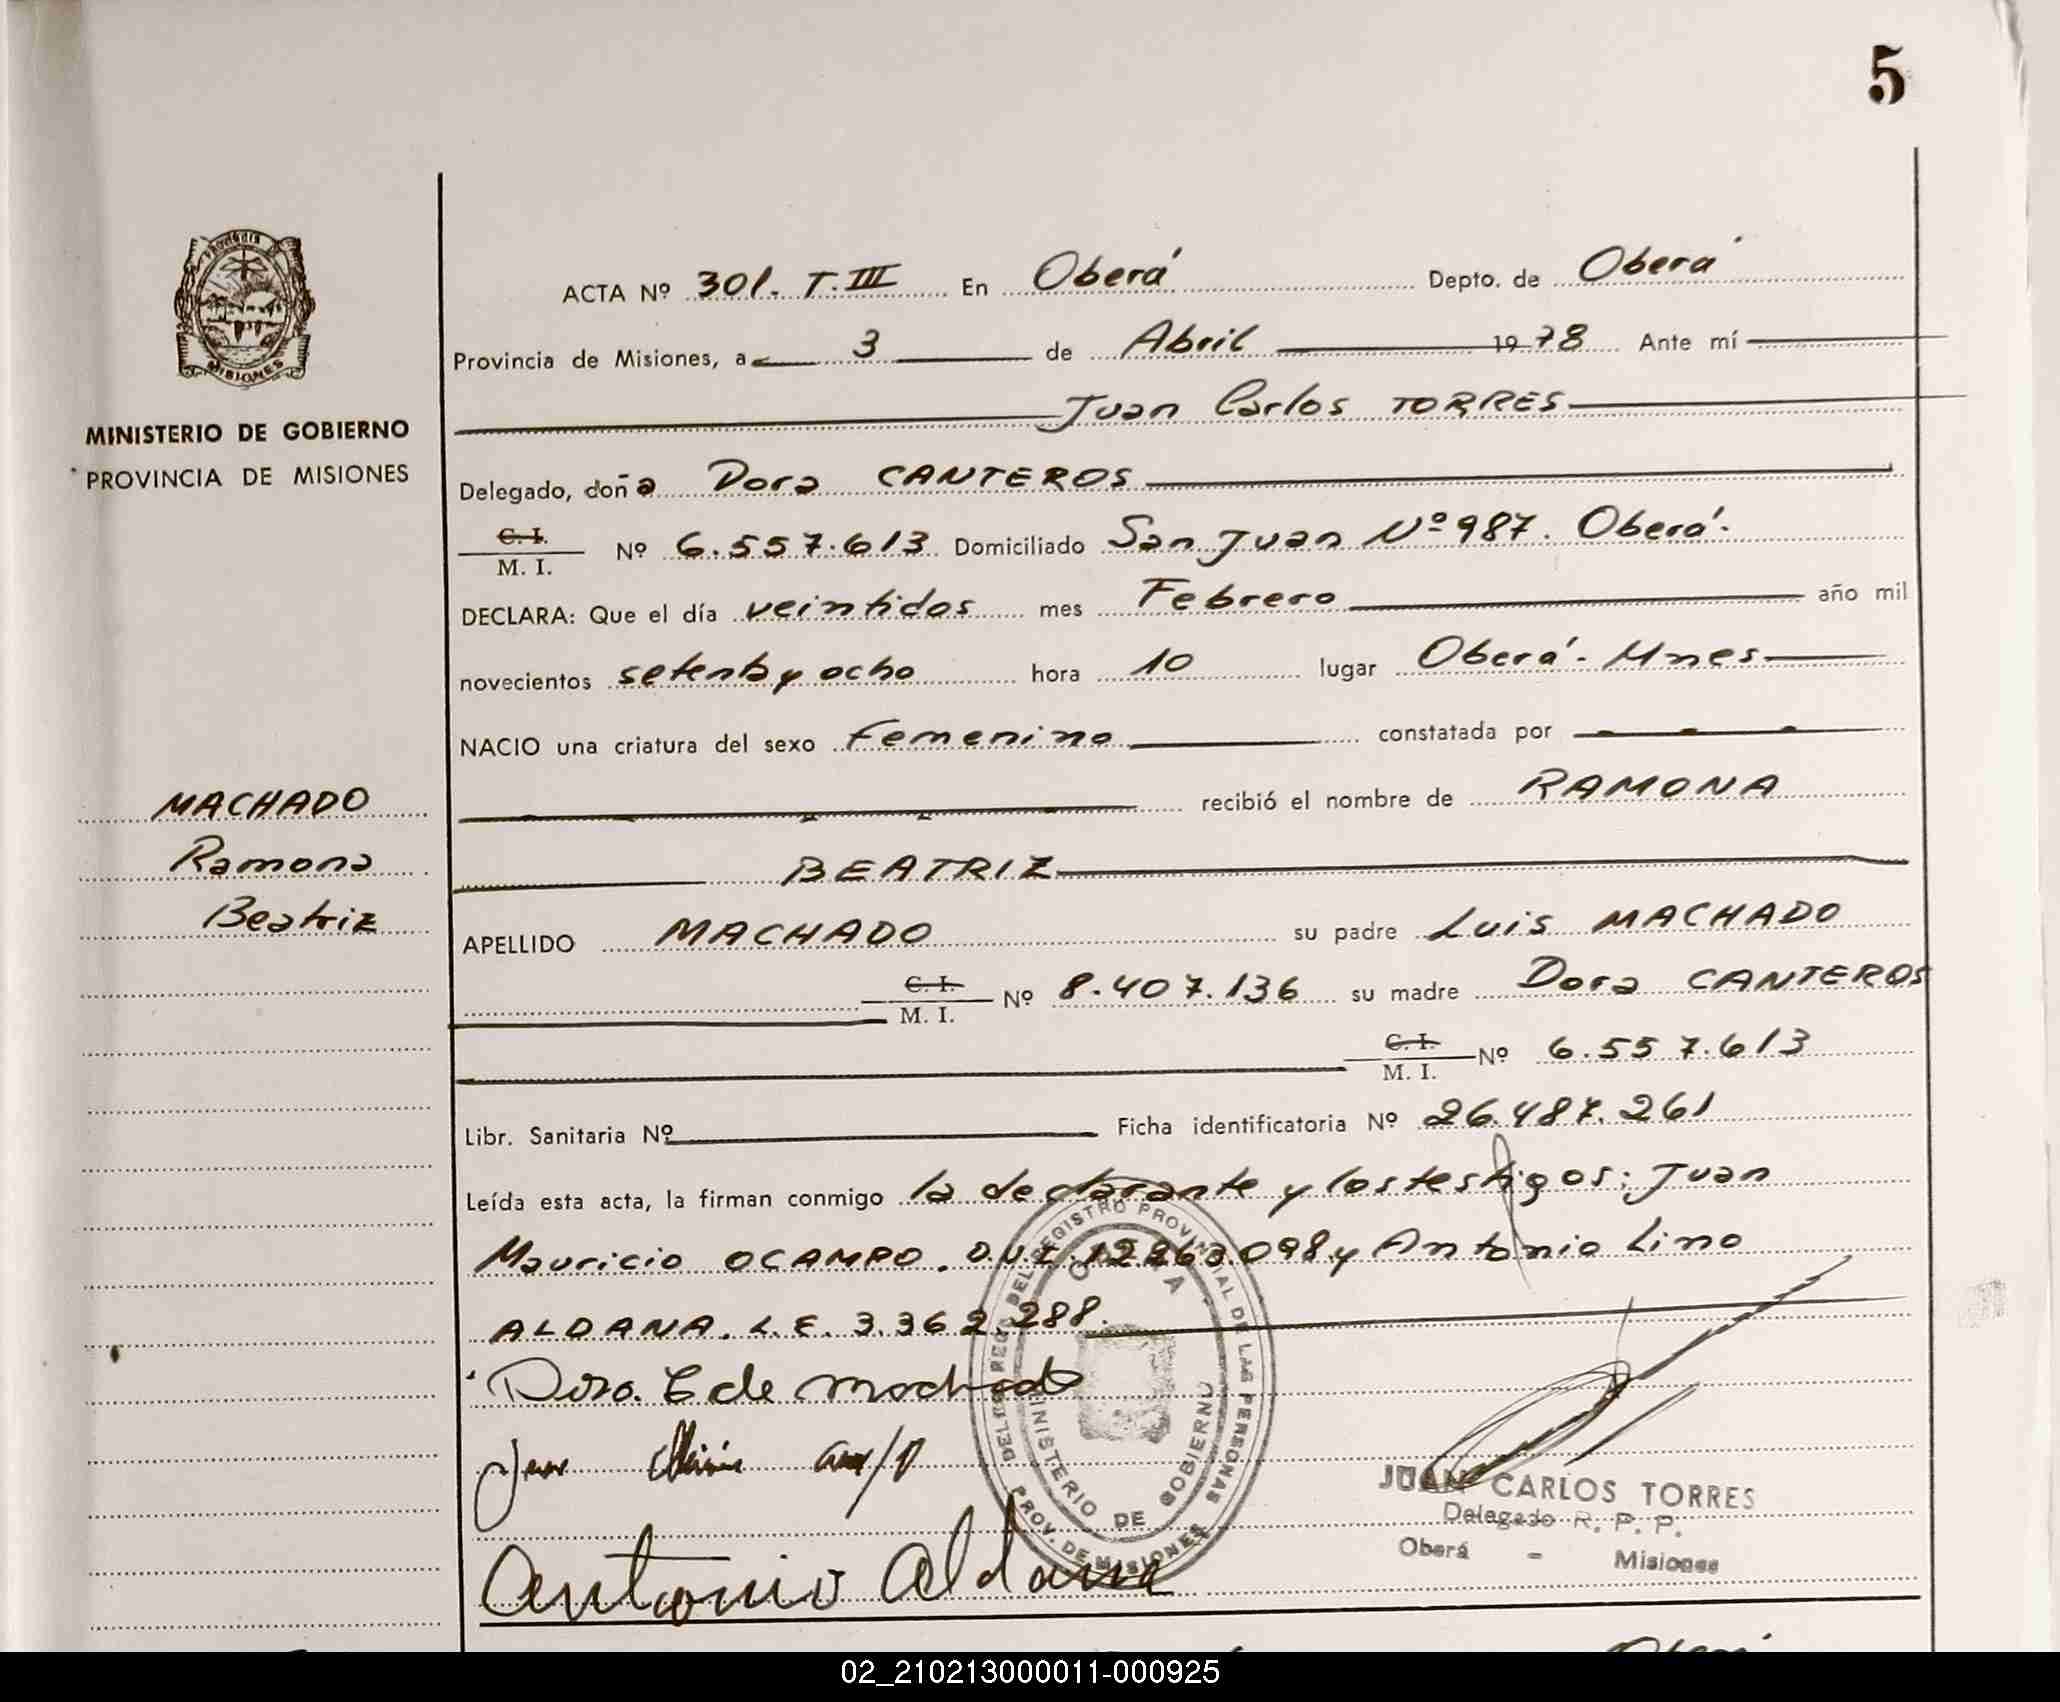 5
PROVINCIA
MISIONES
MINISTERIO DE GOBIERNO
PROVINCIA DE MISIONES
MACHADO
Ramona
Beatriz
ACTA Nº 301. T. III En Oberá Depto. de Oberá
Provincia de Misiones, a 3 de Abril 1978 Ante mí
Juan Carlos TORRES
Delegado, doña Dora CANTEROS
C. I.
M. I. Nº 6.557.613 Domiciliado San Juan Nº 987. Oberá.
DECLARA: Que el día veintidos mes Febrero año mil
novecientos setenta y ocho hora 10 lugar Oberá - Mnes
NACIO una criatura del sexo Femenino constatada por
recibió el nombre de RAMONA
BEATRIZ
APELLIDO MACHADO su padre Luis MACHADO
C. I.
M. I. Nº 8.407.136 su madre Dora CANTEROS
C. I.
M. I. Nº 6.557.613
Libr. Sanitaria Nº Ficha identificatoria Nº 26.487.261
Leída esta acta, la firman conmigo la declarante y los testigos: Juan
Mauricio OCAMPO. D.N.I. 12.263.098 y Antonio Lino
ALDANA. L.E. 3.362.288.
Dora. C de Machado
Juan
Antonio Aldana
REGISTRO PROVINCIAL DE LAS PERSONAS
MINISTERIO DE GOBIERNO
PROV. DE MISIONES
JUAN CARLOS TORRES
Delegado R. P. P.
Oberá - Misiones
02_210213000011-000925